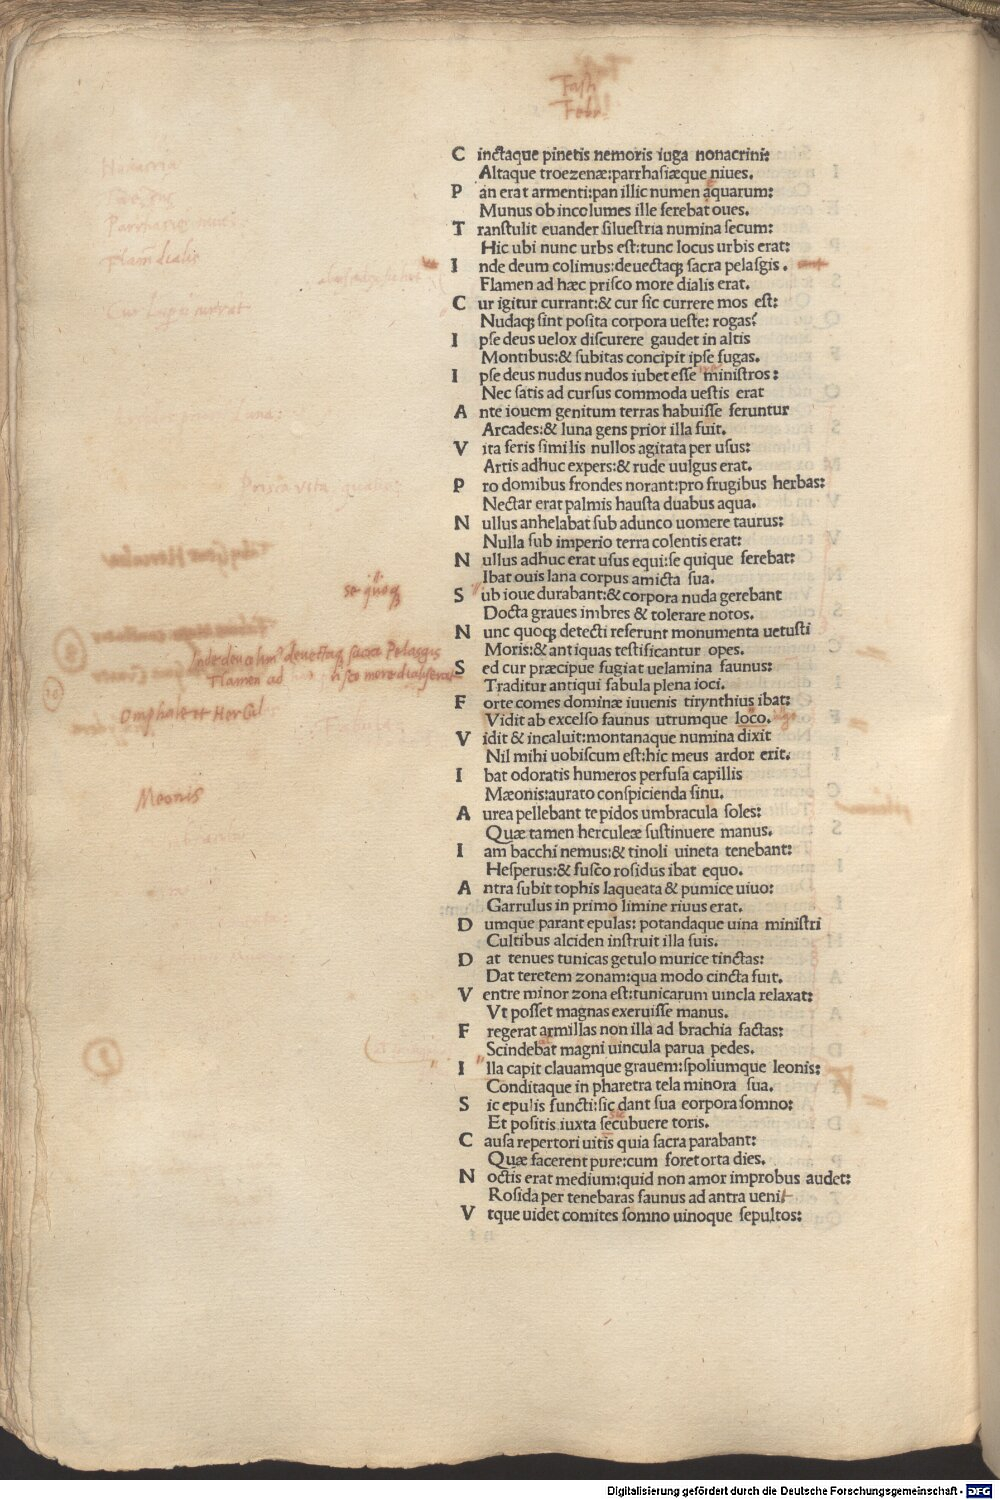 Fasti
Febr.
C inctaque pinetis nemoris iuga nonacrini:
Altaque troezenæ:parrhasiæque niues.
P an erat armenti:pan illic numen aquarum:
Munus ob incolumes ille ferebat oues.
T ranstulit euander siluestria numina secum:
Hic ubi nunc urbs est:tunc locus urbis erat:
I nde deum colimus:deuectaqꝫ sacra pelasgis.
Flamen ad hæc prisco more dialis erat.
C ur igitur currant:& cur sic currere mos est:
Nudaqꝫ sint posita corpora ueste: rogas?
I pse deus uelox discurere gaudet in altis
Montibus:& subitas concipit ipse fugas.
I pse deus nudus nudos iubet esse ministros:
Nec satis ad cursus commoda uestis erat
A nte iouem genitum terras habuisse feruntur
Arcades:& luna gens prior illa fuit.
V ita feris similis nullos agitata per usus:
Artis adhuc expers:& rude uulgus erat.
P ro domibus frondes norant:pro frugibus herbas:
Nectar erat palmis hausta duabus aqua.
N ullus anhelabat sub adunco uomere taurus:
Nulla sub imperio terra colentis erat:
N ullus adhuc erat usus equi:se quique ferebat:
se quoqꝫ
Ibat ouis lana corpus amicta sua.
S ub ioue durabant:& corpora nuda gerebant
Docta graues imbres & tolerare notos.
N unc quoqꝫ detecti referunt monumenta uetusti
Moris:& antiquas testificantur opes.
S ed cur præcipue fugiat uelamina faunus:
Traditur antiqui fabula plena ioci.
F orte comes dominæ iuuenis tirynthius ibat:
Omphale et Hercul
Vidit ab excelso faunus utrumque loco.
V idit & incaluit:montanaque numina dixit
Nil mihi uobiscum est:hic meus ardor erit.
I bat odoratis humeros perfusa capillis
Mæonis:aurato conspicienda sinu.
Meonis
A urea pellebant tepidos umbracula soles:
Quæ tamen herculeæ sustinuere manus.
I am bacchi nemus:& tinoli uineta tenebant:
Hesperus:& fusco rosidus ibat equo.
A ntra subit tophis laqueata & pumice uiuo:
Garrulus in primo limine riuus erat.
D umque parant epulas: potandaque uina ministri
Cultibus alciden instruit illa suis.
D at tenues tunicas getulo murice tinctas:
Dat teretem zonam:qua modo cincta fuit.
V entre minor zona est:tunicarum uincla relaxat:
Vt posset magnas exeruisse manus.
F regerat armillas non illa ad brachia factas:
Scindebat magni uincula parua pedes.
I lla capit clauamque grauem:spoliumque leonis:
Conditaque in pharetra tela minora sua.
S ic epulis functi:sic dant sua eorpora somno:
Et positis iuxta secubuere toris.
C ausa repertori uitis quia sacra parabant:
Quæ facerent pure:cum foret orta dies.
N octis erat medium:quid non amor improbus audet:
Rosida per tenebaras faunus ad antra uenit
V tque uidet comites somno uinoque sepultos:
Digitalisierung gefördert durch die Deutsche Forschungsgemeinschaft - DFG